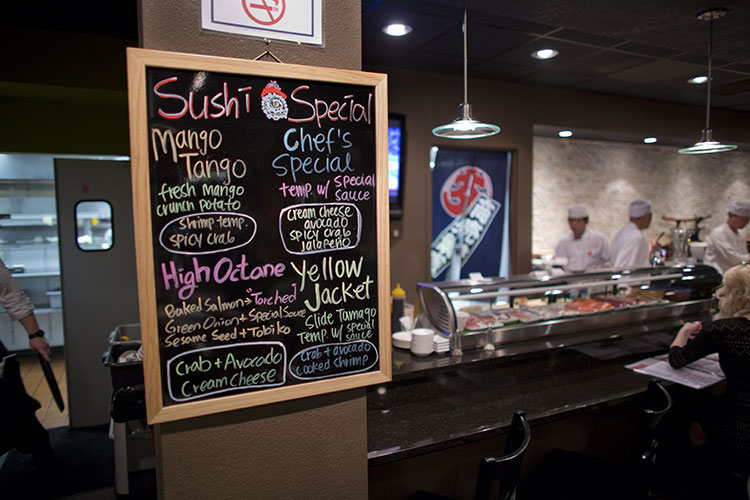 Sushi Special
Mango
Tango
fresh mango
crunch potato
shrimp temp.
spicy crab
Chef's
Special
temp. w/ special
sauce
cream cheese
avocado
spicy crab
jalapeño
High Octane
Baked Salmon → "Torched"
Green Onion + Special Sauce
Sesame Seed + Tobiko
Crab + Avocado
Cream Cheese
Yellow
Jacket
Slide Tamago
Temp. w/ special
sauce
Crab + avocado
cooked shrimp